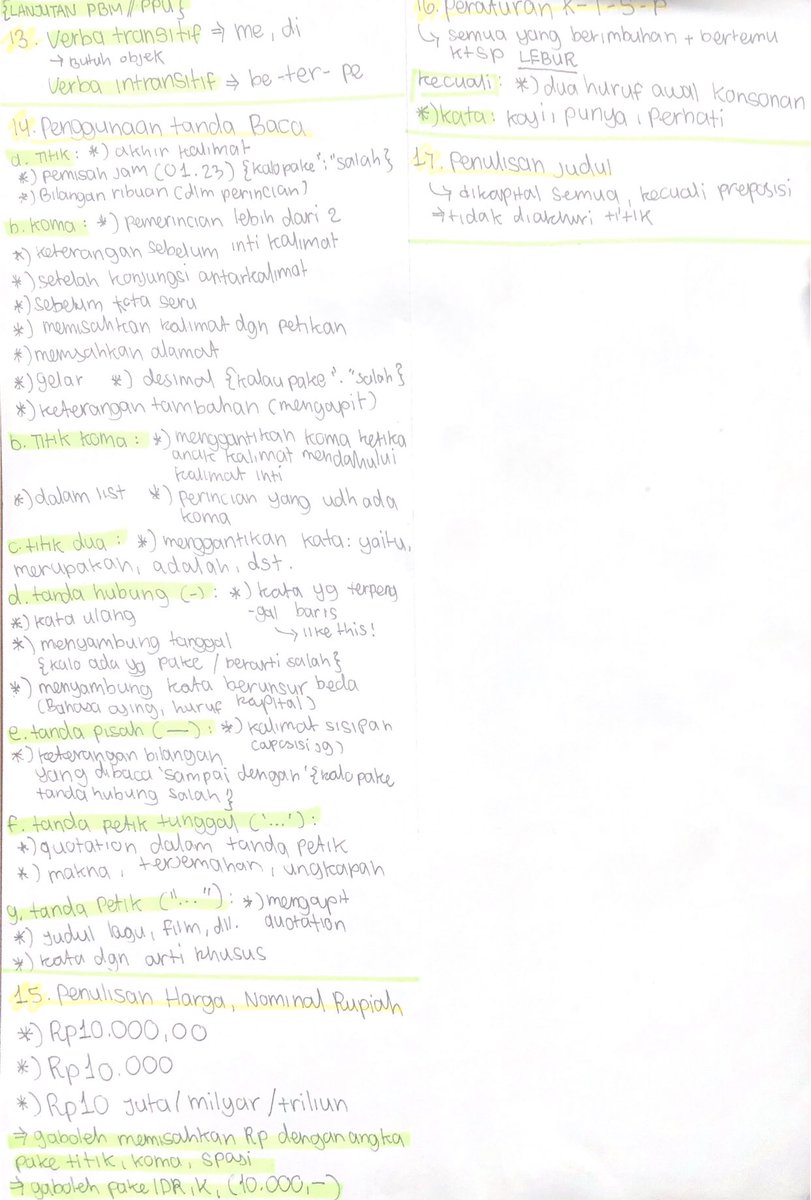 {LANJUTAN PBM // PPU}
13. Verba transitif ⇒ me, di
→ Butuh objek
Verba intransitif ⇒ be-ter-pe
14. Penggunaan tanda Baca
a. Titik : *) akhir kalimat
*) pemisah jam (01.23) {kalo pake ":" salah}
*) Bilangan ribuan (dlm perincian)
b. koma : *) pemerincian lebih dari 2
*) keterangan sebelum inti kalimat
*) setelah konjungsi antarkalimat
*) sebelum kata seru
*) memisahkan kalimat dgn petikan
*) memisahkan alamat
*) gelar *) desimal {kalau pake "." salah}
*) keterangan tambahan (mengapit)
b. Titik koma : *) menggantikan koma ketika
anak kalimat mendahului
kalimat inti
*) dalam list *) perincian yang udh ada
koma
c. titik dua : *) menggantikan kata: yaitu,
merupakan, adalah, dst.
d. tanda hubung (-) : *) kata yg terpeng
-gal baris
↳ like this!
*) kata ulang
*) menyambung tanggal
{kalo ada yg pake / berarti salah}
*) menyambung kata berunsur beda
(Bahasa asing, huruf kapital)
e. tanda pisah (—) : *) kalimat sisipan
(aposisi jg)
*) keterangan bilangan
yang dibaca 'sampai dengan' {kalo pake
tanda hubung salah}
f. tanda petik tunggal ('...') :
*) quotation dalam tanda petik
*) makna, terjemahan, ungkapan
g. tanda Petik ("...") : *) mengapit
quotation
*) judul lagu, film, dll.
*) kata dgn arti khusus
15. Penulisan Harga, Nominal Rupiah
*) Rp10.000,00
*) Rp10.000
*) Rp10 juta/milyar/triliun
⇒ gaboleh memisahkan Rp dengan angka
pake titik, koma, spasi
⇒ gaboleh pake IDR, K, (10.000,-)
16. Peraturan K-T-S-P
↳ semua yang berimbuhan + bertemu
KTSP LEBUR
kecuali : *) dua huruf awal konsonan
*) kata : kaji, punya, perhati
17. Penulisan Judul
↳ dikapital semua, kecuali preposisi
⇒ tidak diakhiri titik